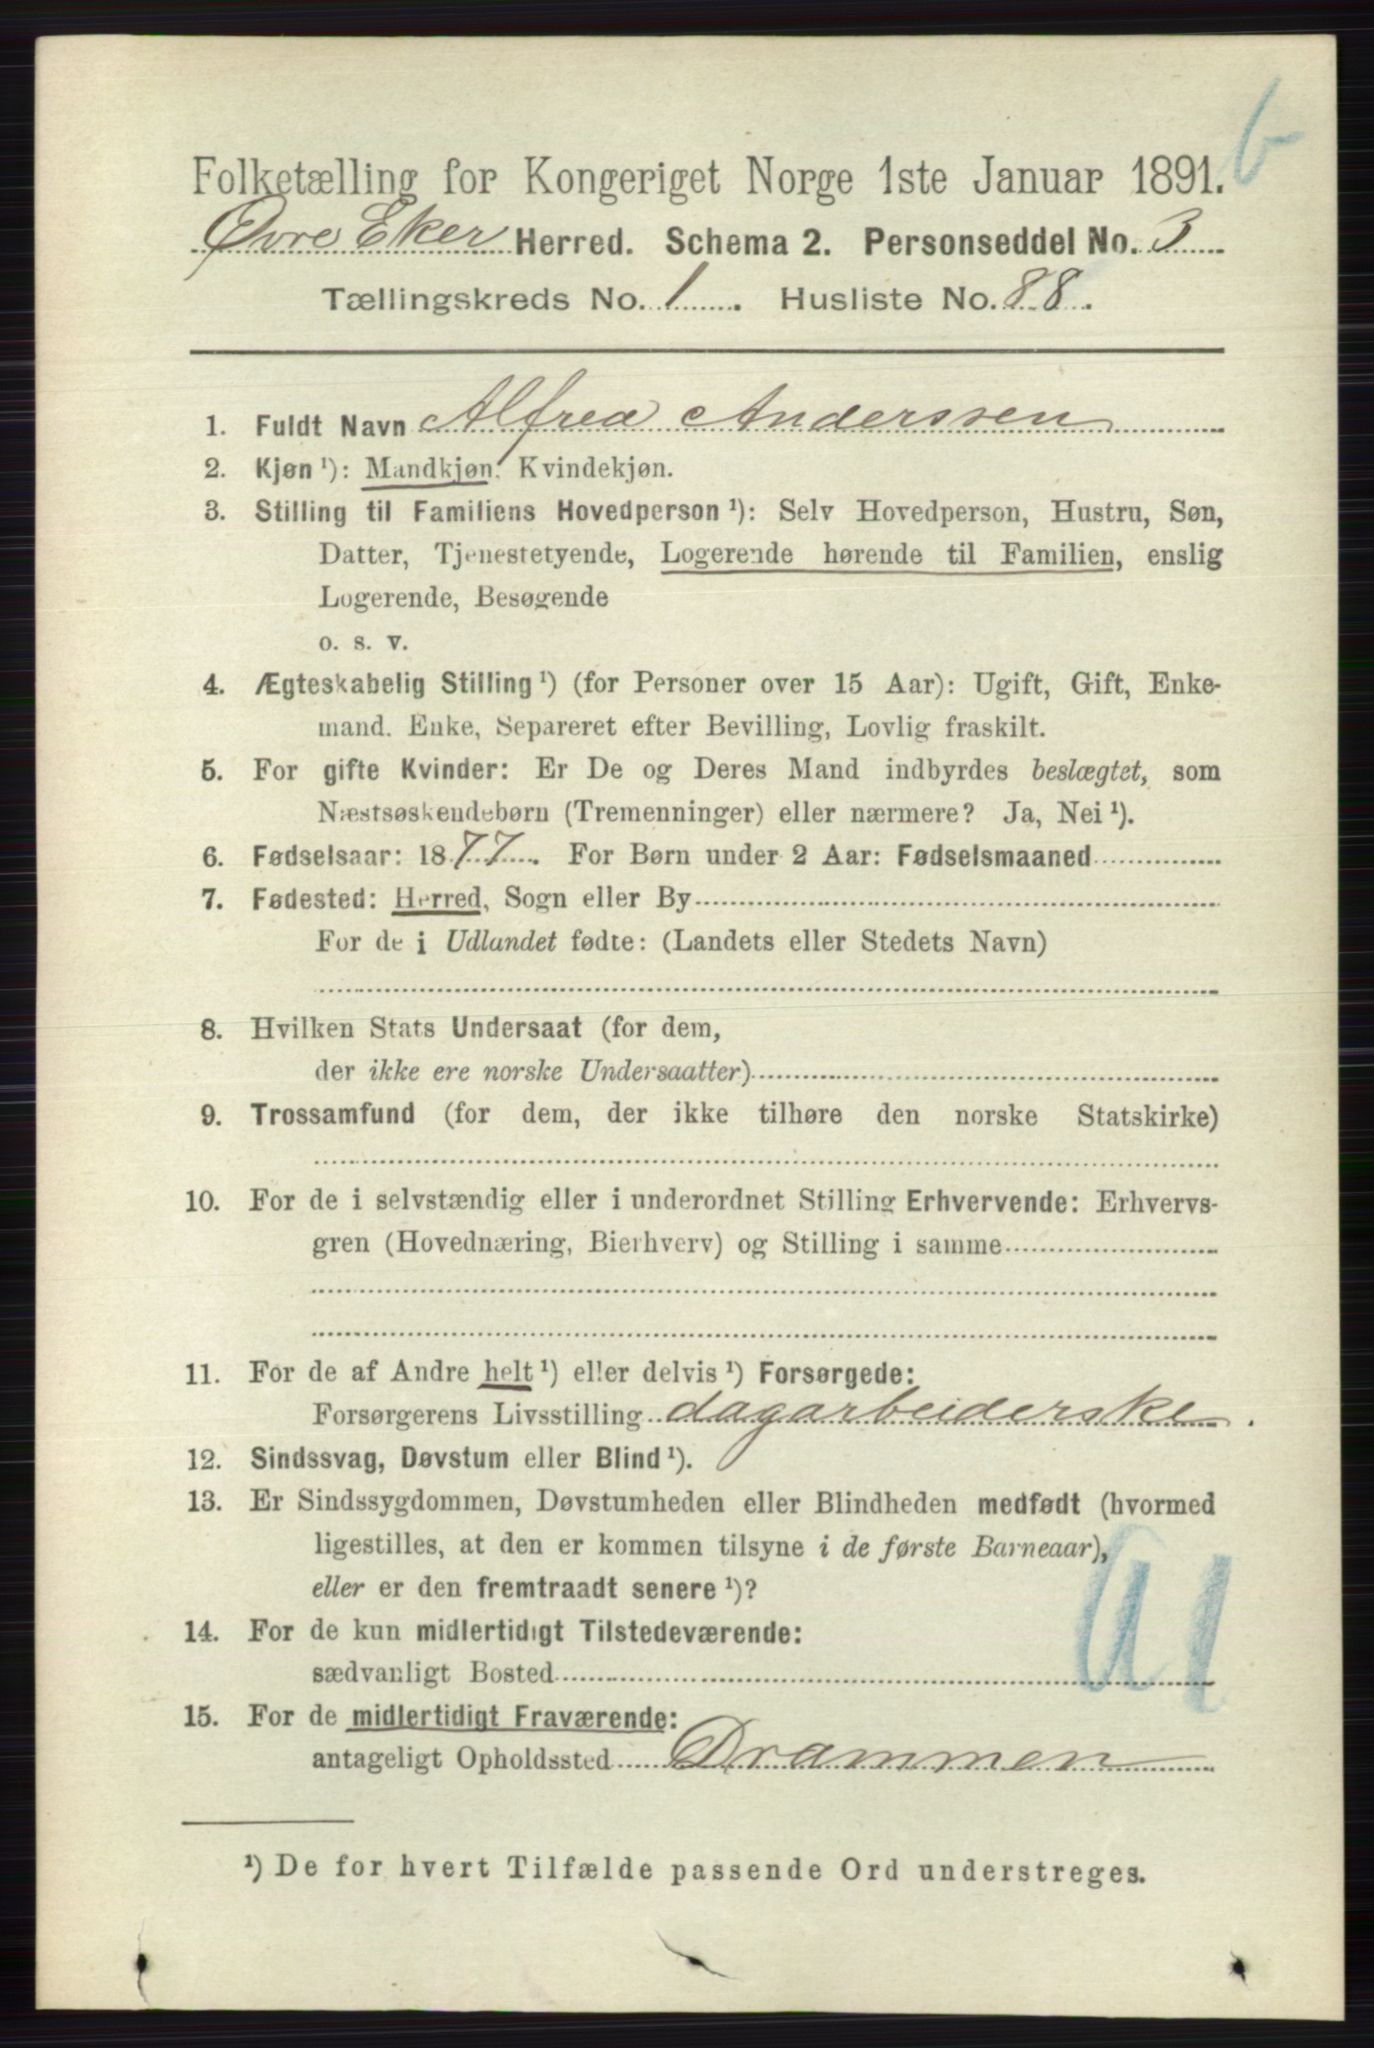 b
Folketælling for Kongeriget Norge 1ste Januar 1891.
Øvre Eker Herred. Schema 2. Personseddel No. 3
Tællingskreds No. 1. Husliste No. 88.
1. Fuldt Navn Alfred Anderssen
2. Kjøn ¹): Mandkjøn, Kvindekjøn.
3. Stilling til Familiens Hovedperson ¹): Selv Hovedperson, Hustru, Søn,
Datter, Tjenestetyende, Logerende hørende til Familien, enslig
Logerende, Besøgende
o. s. v.
4. Ægteskabelig Stilling ¹) (for Personer over 15 Aar): Ugift, Gift, Enke-
mand. Enke, Separeret efter Bevilling, Lovlig fraskilt.
5. For gifte Kvinder: Er De og Deres Mand indbyrdes beslægtet, som
Næstsøskendebørn (Tremenninger) eller nærmere? Ja, Nei ¹).
6. Fødselsaar: 1877. For Børn under 2 Aar: Fødselsmaaned
7. Fødested: Herred, Sogn eller By
For de i Udlandet fødte: (Landets eller Stedets Navn)
8. Hvilken Stats Undersaat (for dem,
der ikke ere norske Undersaatter)
9. Trossamfund (for dem, der ikke tilhøre den norske Statskirke)
10. For de i selvstændig eller i underordnet Stilling Erhvervende: Erhvervs-
gren (Hovednæring, Bierhverv) og Stilling i samme
11. For de af Andre helt ¹) eller delvis ¹) Forsørgede:
Forsørgerens Livsstilling dagarbeiderske.
12. Sindssvag, Døvstum eller Blind ¹).
13. Er Sindssygdommen, Døvstumheden eller Blindheden medfødt (hvormed
ligestilles, at den er kommen tilsyne i de første Barneaar),
eller er den fremtraadt senere ¹)?
14. For de kun midlertidigt Tilstedeværende:
sædvanligt Bosted
15. For de midlertidigt Fraværende:
antageligt Opholdssted Drammen
¹) De for hvert Tilfælde passende Ord understreges.